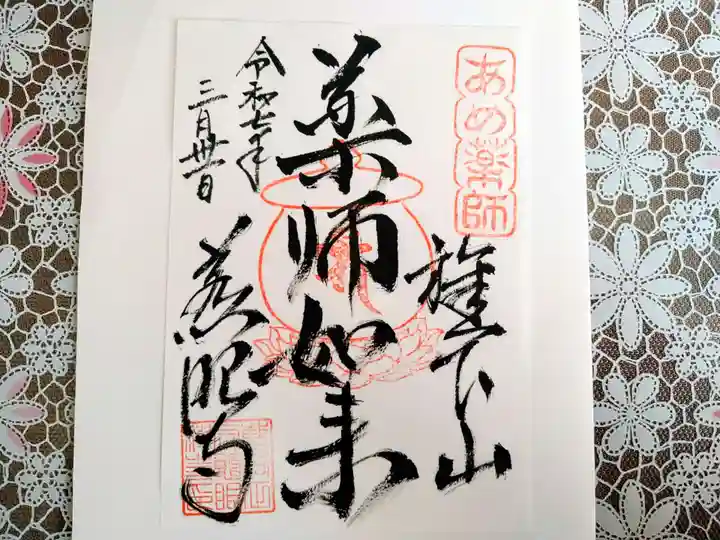 あめ薬師
旗下山
薬師如来
令和七年
三月卅一日
慈眼寺